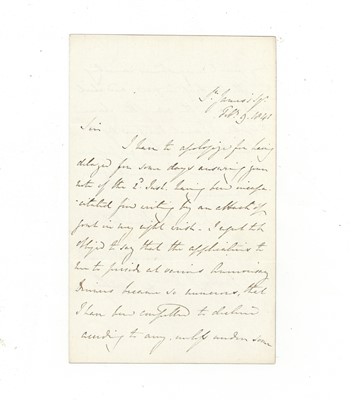 St. James's Sq.
Feb. 9. 1841
Sir
I have to apologize for having
delayed for some days answering your
note of the 2d. Inst. having been incapa-
-citated from writing by an attack of
gout in my right wrist. I regret to be
obliged to say that the applications to
me to preside at various Anniversary
Dinners became so numerous, that
I have been compelled to decline
acceding to any, unless under some